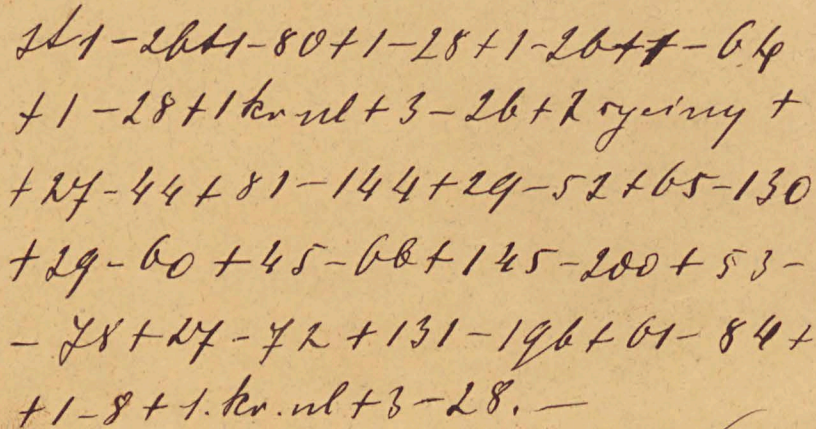 st 1-26+1-80+1-28+1-26+1-64
+1-28+1 kr nl+3-26+2 ryciny+
+27-44+81-144+29-52+65-130
+29-60+45-66+145-200+53-
-78+27-72+131-196+61-84+
+1-8+1.kr.nl+3-28.-